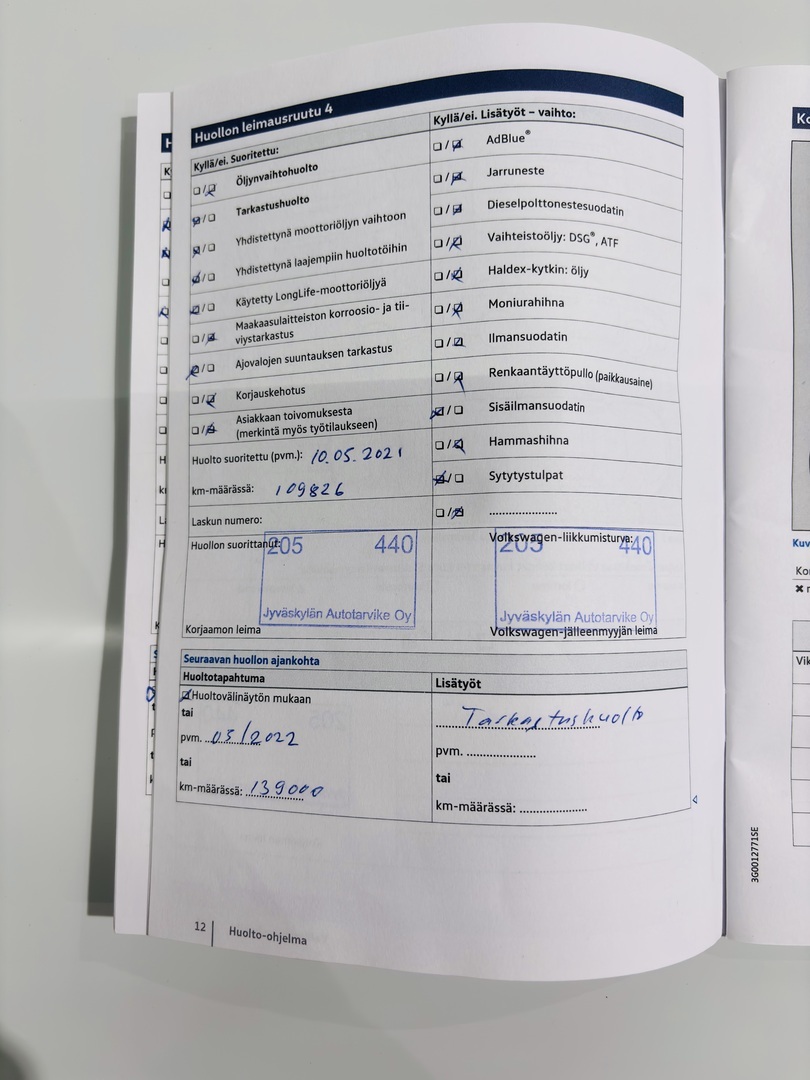 Huollon leimausruutu 4
Kyllä/ei. Suoritettu:
Öljynvaihtohuolto
Tarkastushuolto
Yhdistettynä moottoriöljyn vaihtoon
Yhdistettynä laajempiin huoltotöihin
Käytetty LongLife-moottoriöljyä
Maakaasulaitteiston korroosio- ja tii-
viystarkastus
Ajovalojen suuntauksen tarkastus
Korjauskehotus
Asiakkaan toivomuksesta
(merkintä myös työtilaukseen)
Huolto suoritettu (pvm.): 10.05.2021
km-määrässä: 109826
Laskun numero:
Huollon suorittanut:
205 440
Jyväskylän Autotarvike Oy
Korjaamon leima
Kyllä/ei. Lisätyöt – vaihto:
AdBlue®
Jarruneste
Dieselpolttonestesuodatin
Vaihteistoöljy: DSG®, ATF
Haldex-kytkin: öljy
Moniurahihna
Ilmansuodatin
Renkaantäyttöpullo (paikkausaine)
Sisäilmansuodatin
Hammashihna
Sytytystulpat
....................
Volkswagen-liikkumisturva:
205 440
Jyväskylän Autotarvike Oy
Volkswagen-jälleenmyyjän leima
Seuraavan huollon ajankohta
Huoltotapahtuma
Huoltovälinäytön mukaan
tai
pvm. 05/2022
tai
km-määrässä: 139000
Lisätyöt
Tarkastushuolto
pvm. ....................
tai
km-määrässä: ....................
12 Huolto-ohjelma
3G0012771SE
Kuv
Vik